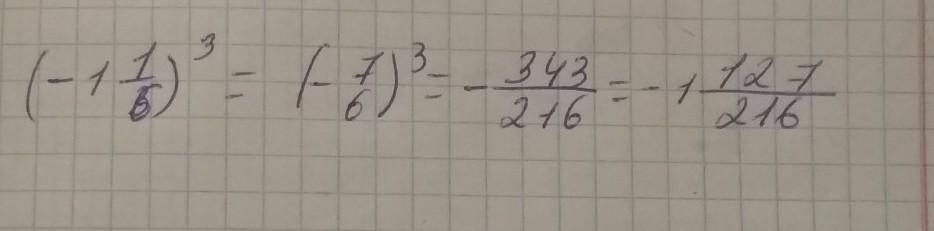 (-1 1/6)^3 = (-7/6)^3 = -343/216 = -1 127/216